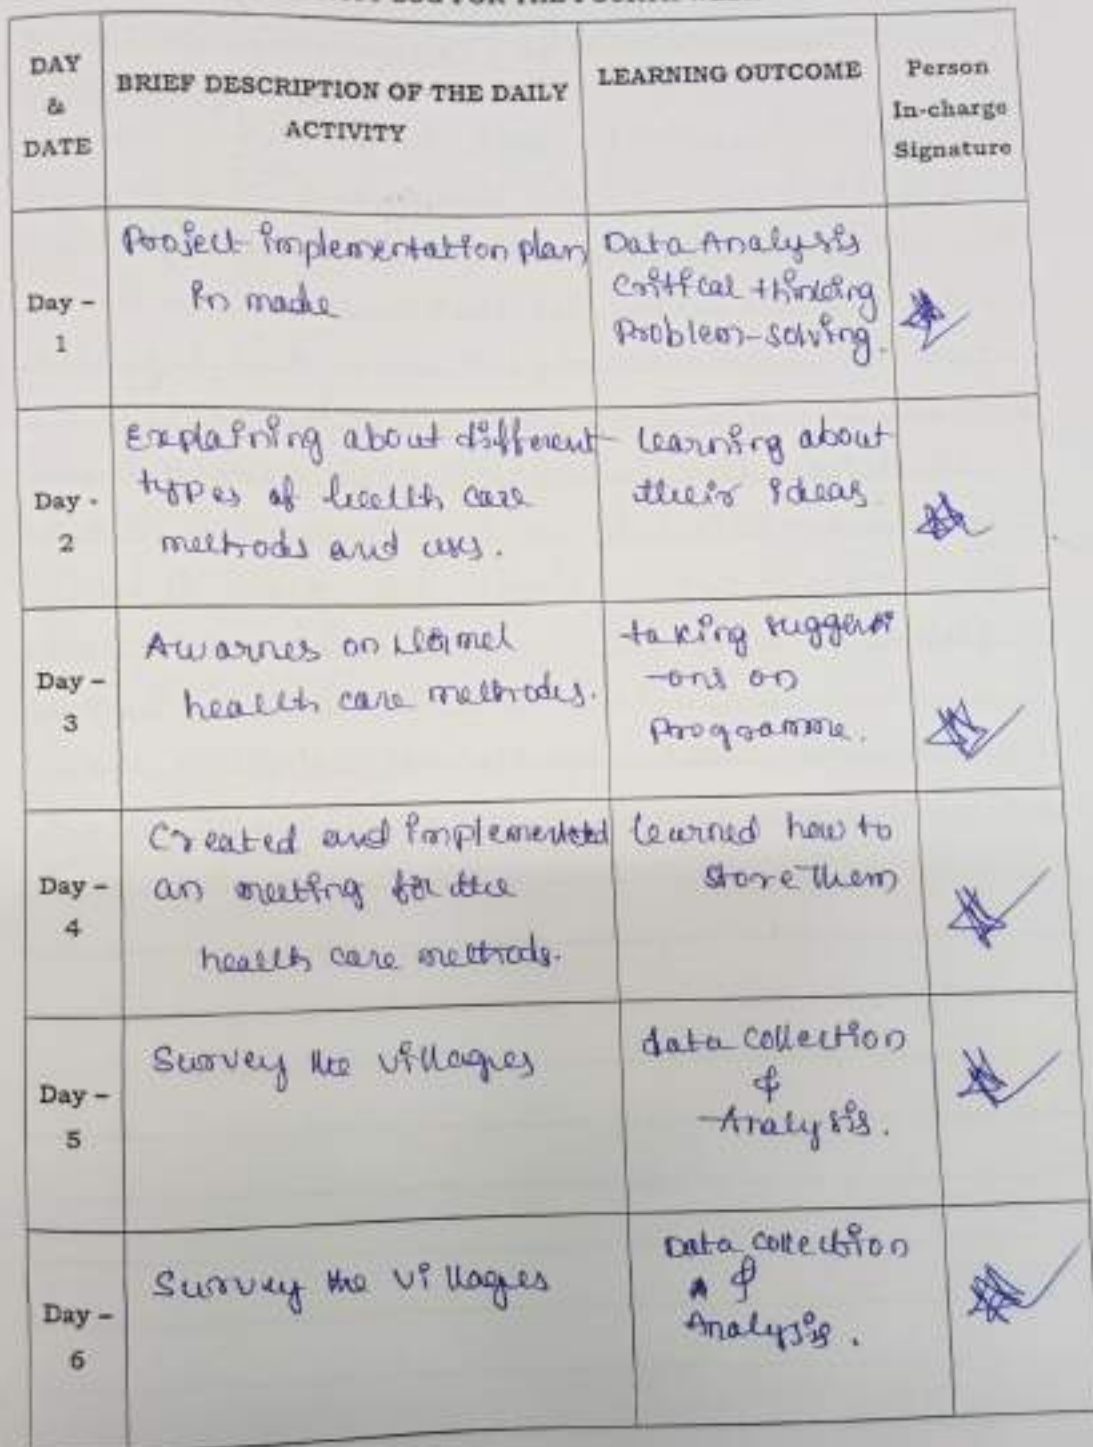 LOG FOR THE FOURTH WEEK
DAY
&
DATE
BRIEF DESCRIPTION OF THE DAILY
ACTIVITY
LEARNING OUTCOME
Person
In-charge
Signature
Day –
1
Project implementation plan
in made
Data Analysis
Critical thinking
Problem-solving.
Day -
2
Explaining about different
types of health care
methods and uses.
learning about
their ideas
Day –
3
Awarnes on
health care methodes.
taking suggesti
-ons on
Programme.
Day –
4
Created and implemented
an meeting for the
health care methods.
learned how to
store them
Day –
5
Survey the villages
data collection
&
Analysis.
Day –
6
Survey the villages
Data collection
&
Analysis.